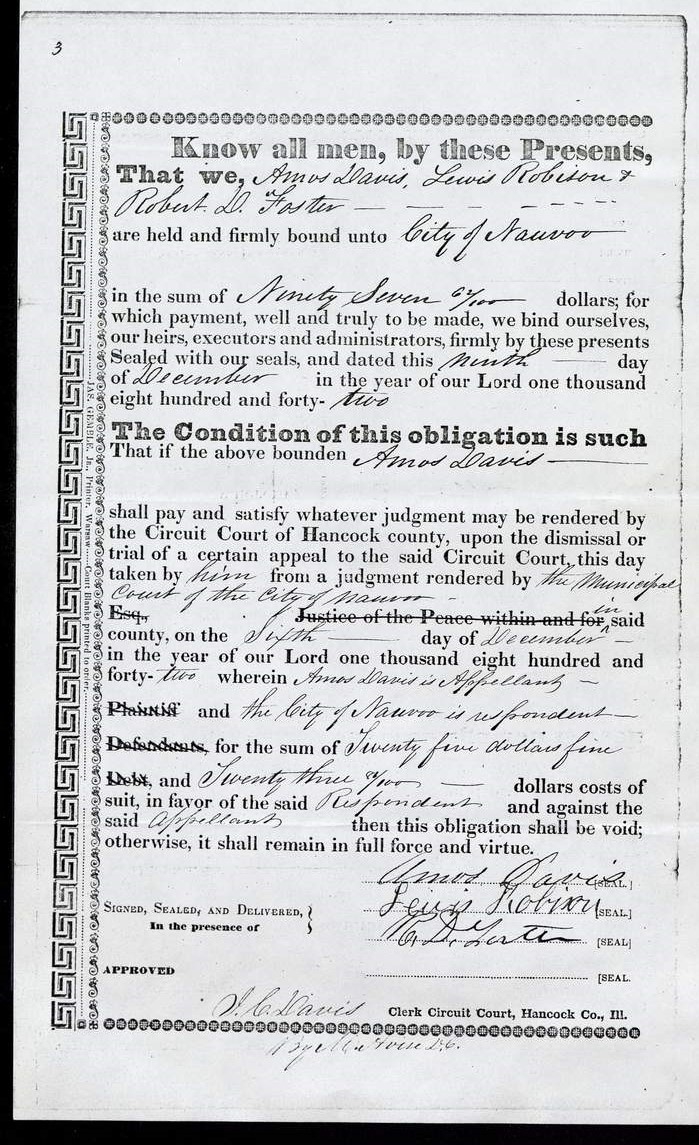 3
Know all men, by these Presents,
That we, Amos Davis, Lewis Robison &
Robert. D. Foster
are held and firmly bound unto City of Nauvoo
in the sum of Ninety Seven 62/100 dollars; for
which payment, well and truly to be made, we bind ourselves,
our heirs, executors and administrators, firmly by these presents
Sealed with our seals, and dated this ninth day
of December in the year of our Lord one thousand
eight hundred and forty- two
The Condition of this obligation is such
That if the above bounden Amos Davis
shall pay and satisfy whatever judgment may be rendered by
the Circuit Court of Hancock county, upon the dismissal or
trial of a certain appeal to the said Circuit Court, this day
taken by him from a judgment rendered by the Municipal
Court of the City of Nauvoo
Esq., Justice of the Peace within and for in said
county, on the Sixth day of December
in the year of our Lord one thousand eight hundred and
forty- two wherein Amos Davis is Appellant
Plaintiff and the City of Nauvoo is respondent
Defendants, for the sum of Twenty five dollars fine
Debt, and Twenty three dollars costs of
suit, in favor of the said Respondent and against the
said Appellant then this obligation shall be void;
otherwise, it shall remain in full force and virtue.
Amos Davis [SEAL.]
Lewis Robison [SEAL.]
SIGNED, SEALED, AND DELIVERED,
In the presence of
R. D. Foster [SEAL]
APPROVED
[SEAL.
J. C. Davis Clerk Circuit Court, Hancock Co., Ill.
By M. D.C.
JAS. GEMBLE, Jr., Printer, Warsaw.....Court Blanks printed to order.